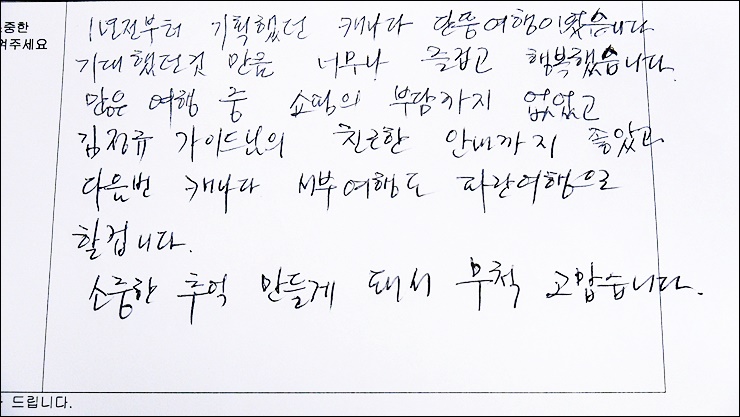 소중한
겨주세요
1년전부터 기획했던 캐나다 단풍여행이었습니다
기대했던것 만큼 너무나 즐겁고 행복했습니다.
많은 여행 중 쇼핑의 부담까지 없었고
김정규 가이드님의 친근한 안내까지 좋았고
다음번 캐나다 서부여행도 파란여행으로
할겁니다.
소중한 추억 만들게 돼서 무척 고맙습니다.
드립니다.